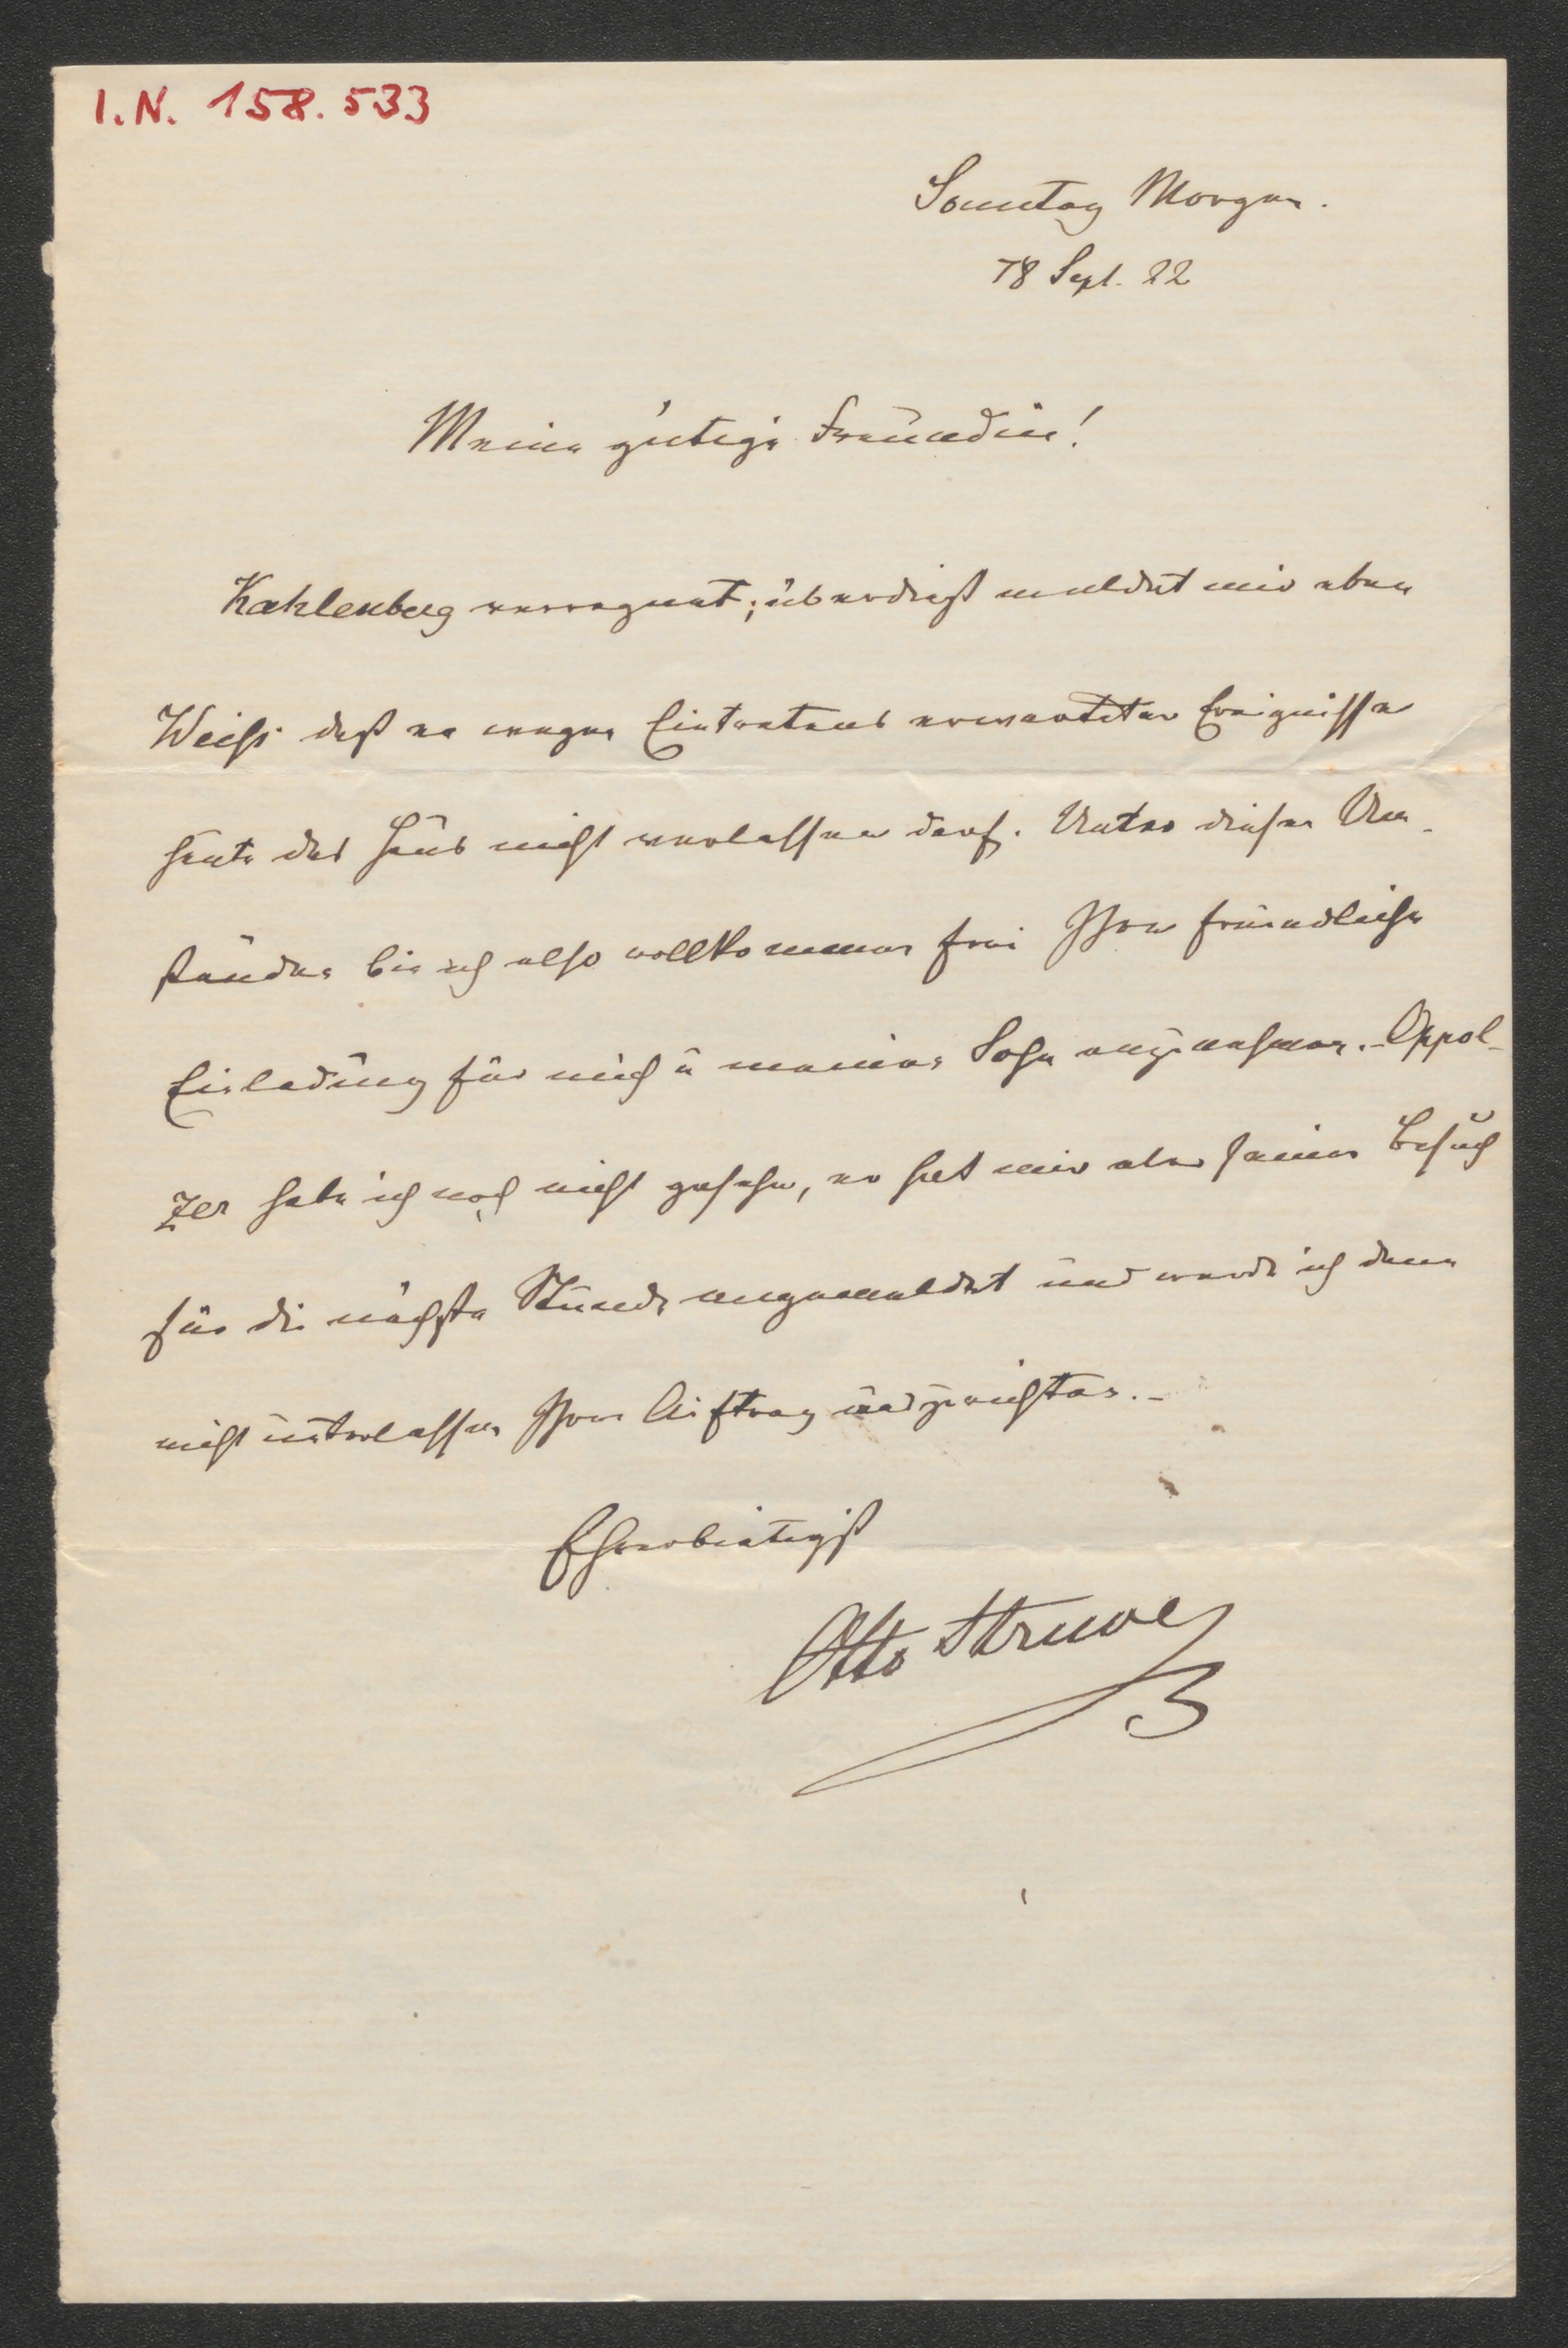 I.N. 158.533
Sonntag Morgen.
78 Sept. 22
Meine gütige Freundin!
Kahlenberg verregnet; überdieß meldet mir eben
Weiss daß er wegen Eintretens erwarteter Ereignisse
heute das Haus nicht verlassen darf. Unter diesen Um-
ständen bin ich also vollkommen frei Ihre freundliche
Einladung für mich u meinen Sohn anzunehmen. - Oppol-
zer habe ich noch nicht gesehen, er hat mir aber seinen Besuch
für die nächste Stunde angemeldet und werde ich dann
nicht unterlassen Ihren Auftrag auszurichten. -
Ehrerbietigst
Otto Struve